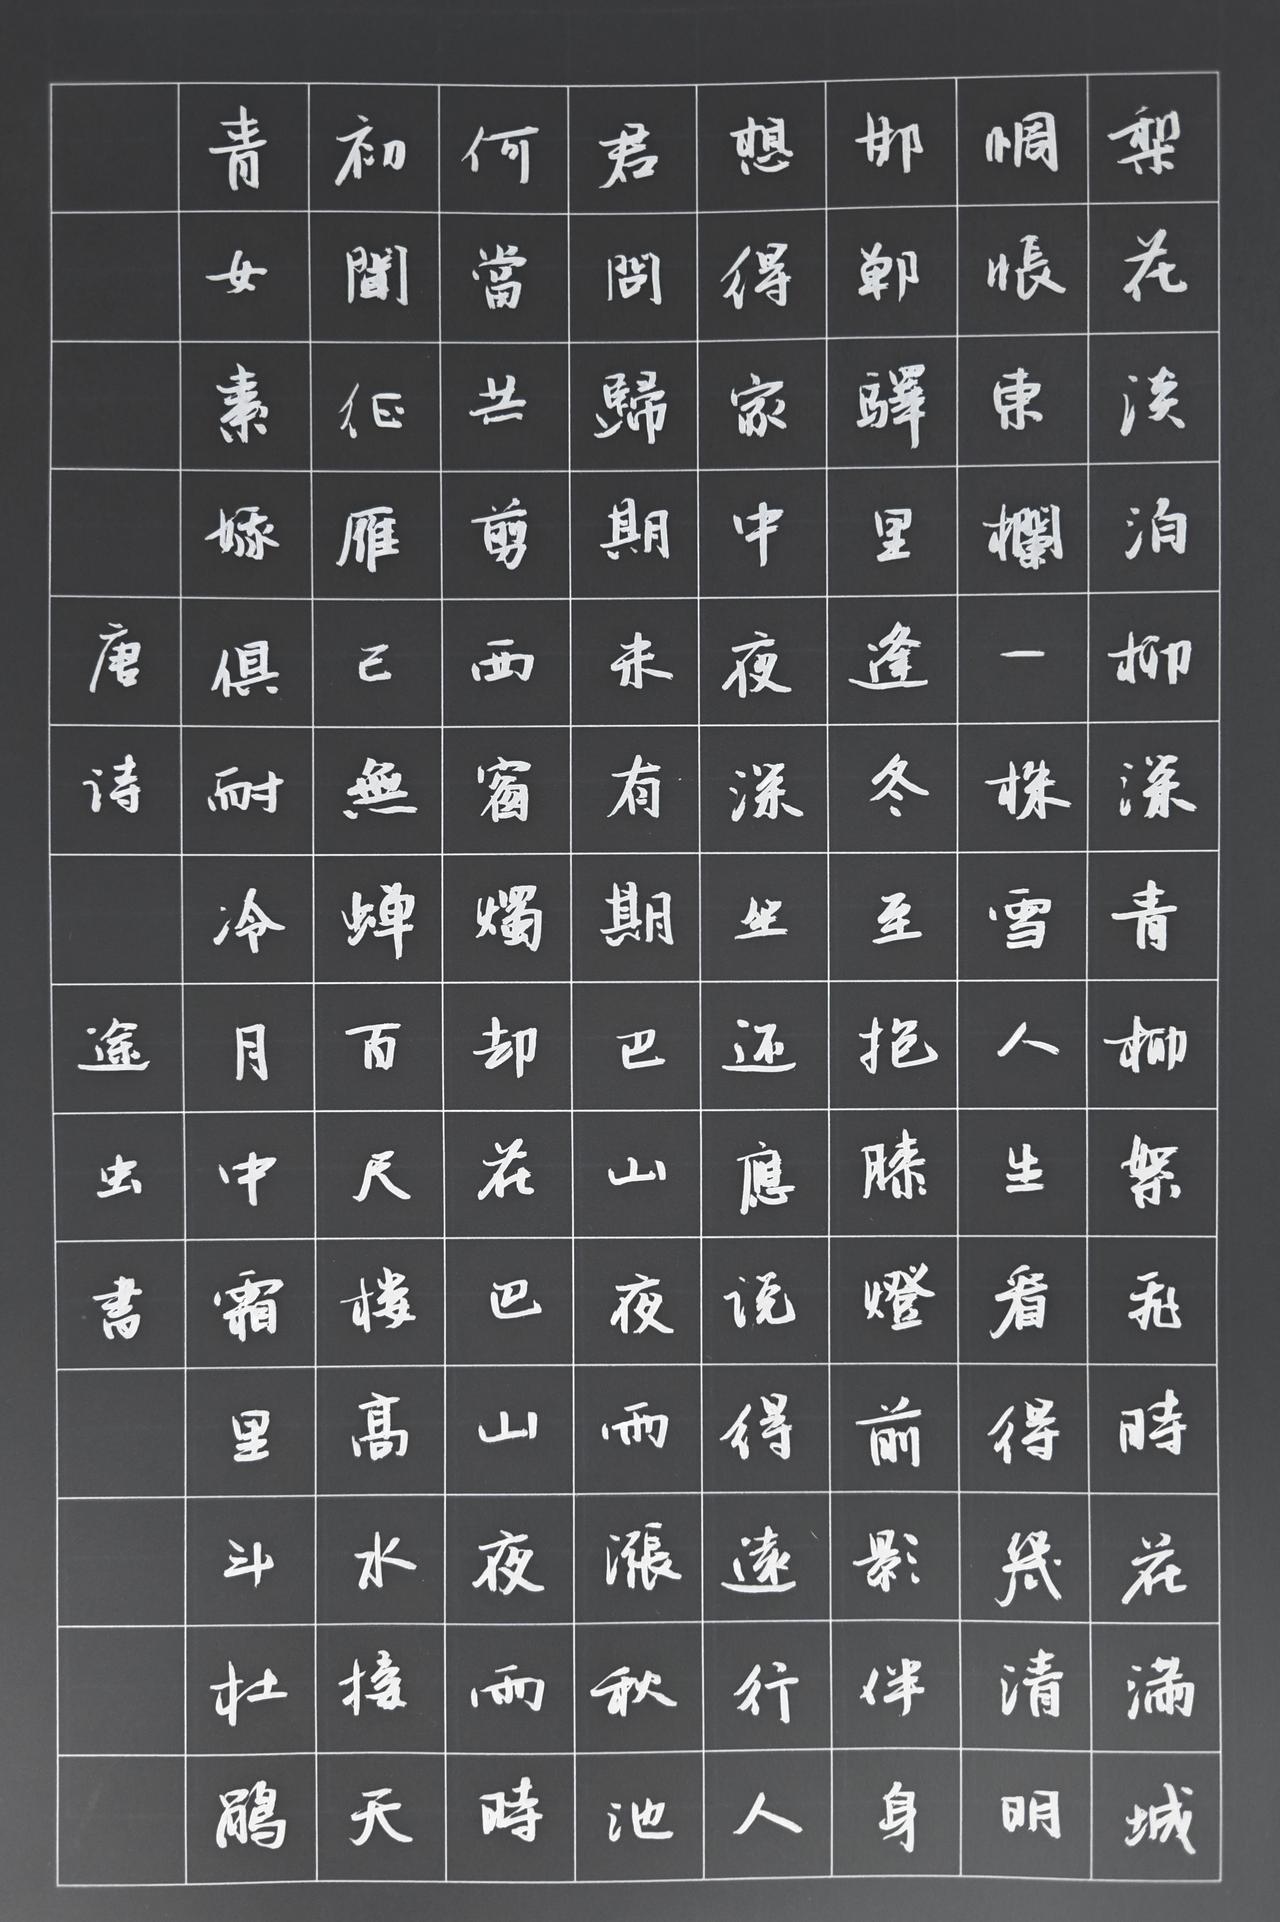 梨花淡泊柳深青柳絮飛時花滿城
惆悵東欄一株雪人生看得幾清明
邯鄲驛里逢冬至抱膝燈前影伴身
想得家中夜深坐还應说得遠行人
君問歸期未有期巴山夜雨漲秋池
何當共剪西窗燭却花巴山夜雨時
初聞征雁已無蝉百尺楼高水接天
青女素嫁俱耐冷月中霜里斗杜鹃
唐诗 途虫書